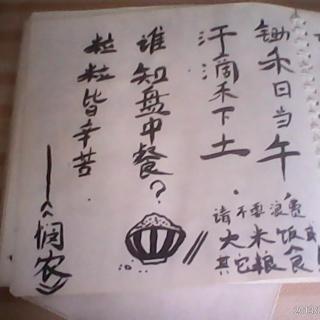 锄禾日当午
汗滴禾下土
谁知盘中餐？
粒粒皆辛苦
——《悯农》
请不要浪费
大米饭
其它粮食